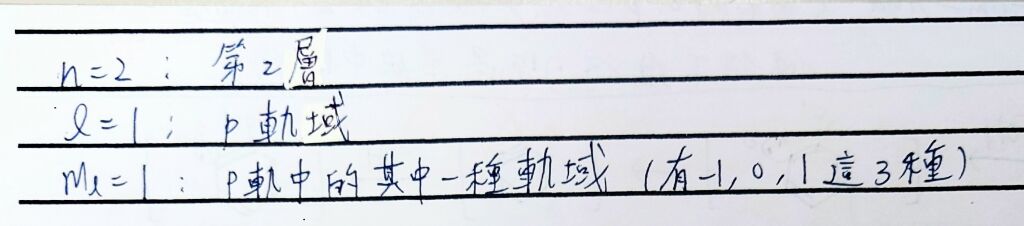 n=2 : 第2層
l=1 : p軌域
ml=1 : p軌中的其中一種軌域 (有-1, 0, 1這3種)